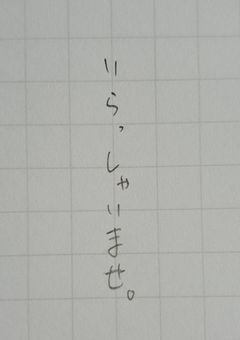 いらっしゃいませ。